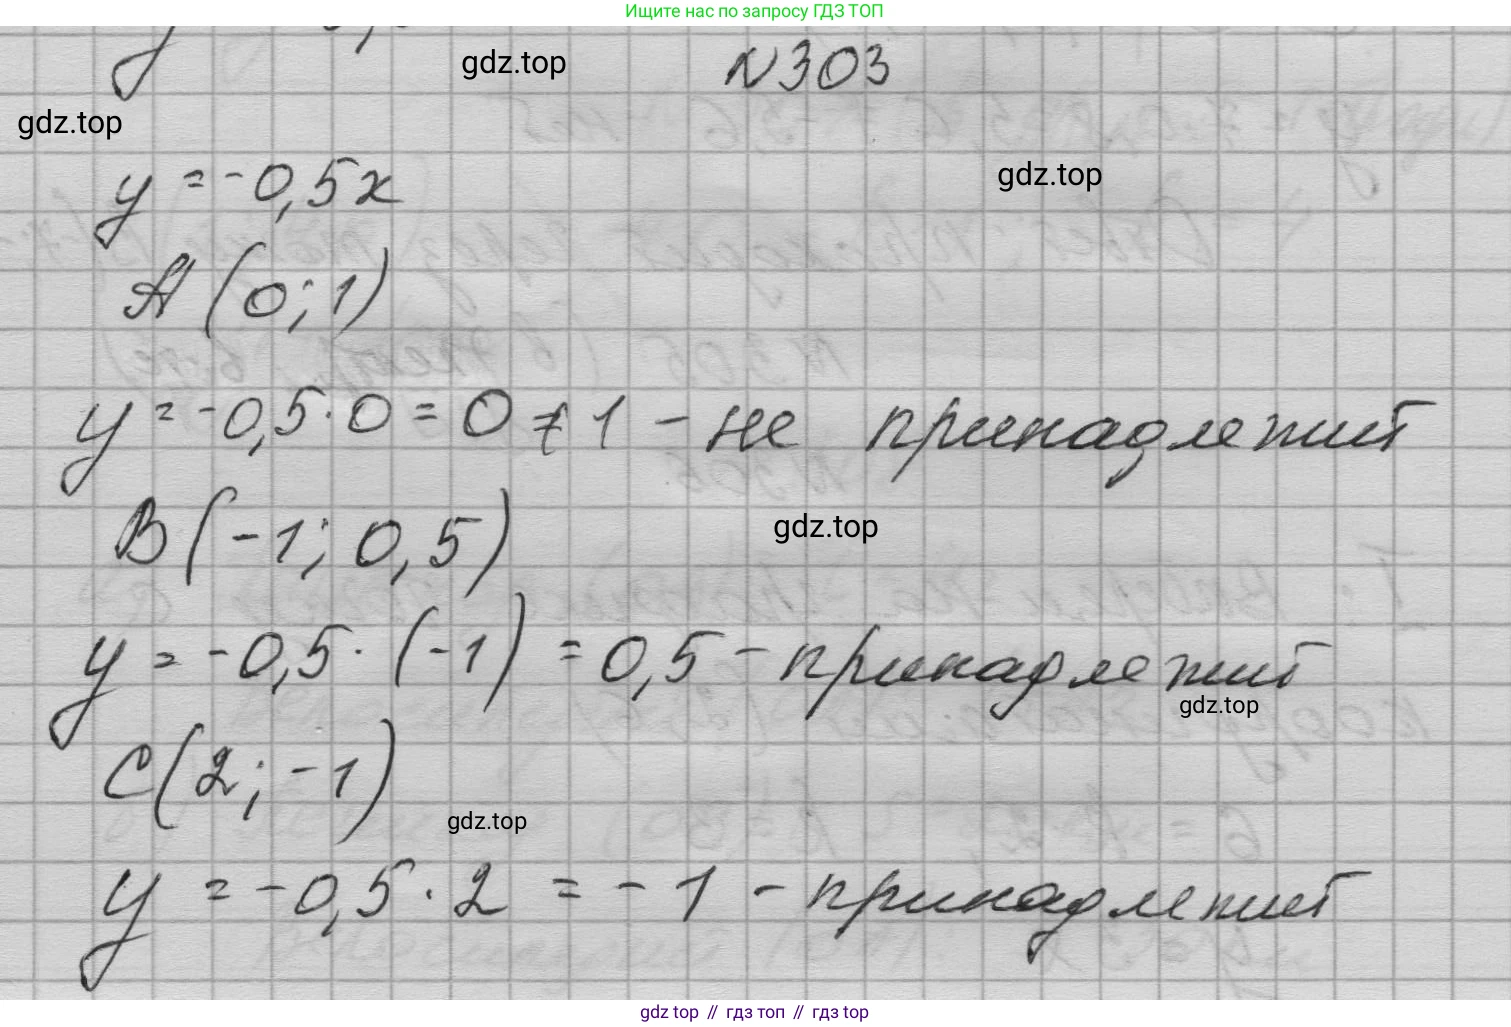 Ищите нас по запросу ГДЗ ТОП
gdz.top
N303
gdz.top
gdz.top
y = -0,5x
A(0; 1)
y = -0,5 · 0 = 0 ≠ 1 - не принадлежит
B(-1; 0,5)
gdz.top
y = -0,5 · (-1) = 0,5 - принадлежит
gdz.top
C(2; -1)
gdz.top
y = -0,5 · 2 = -1 - принадлежит
gdz top // гдз топ // гдз top